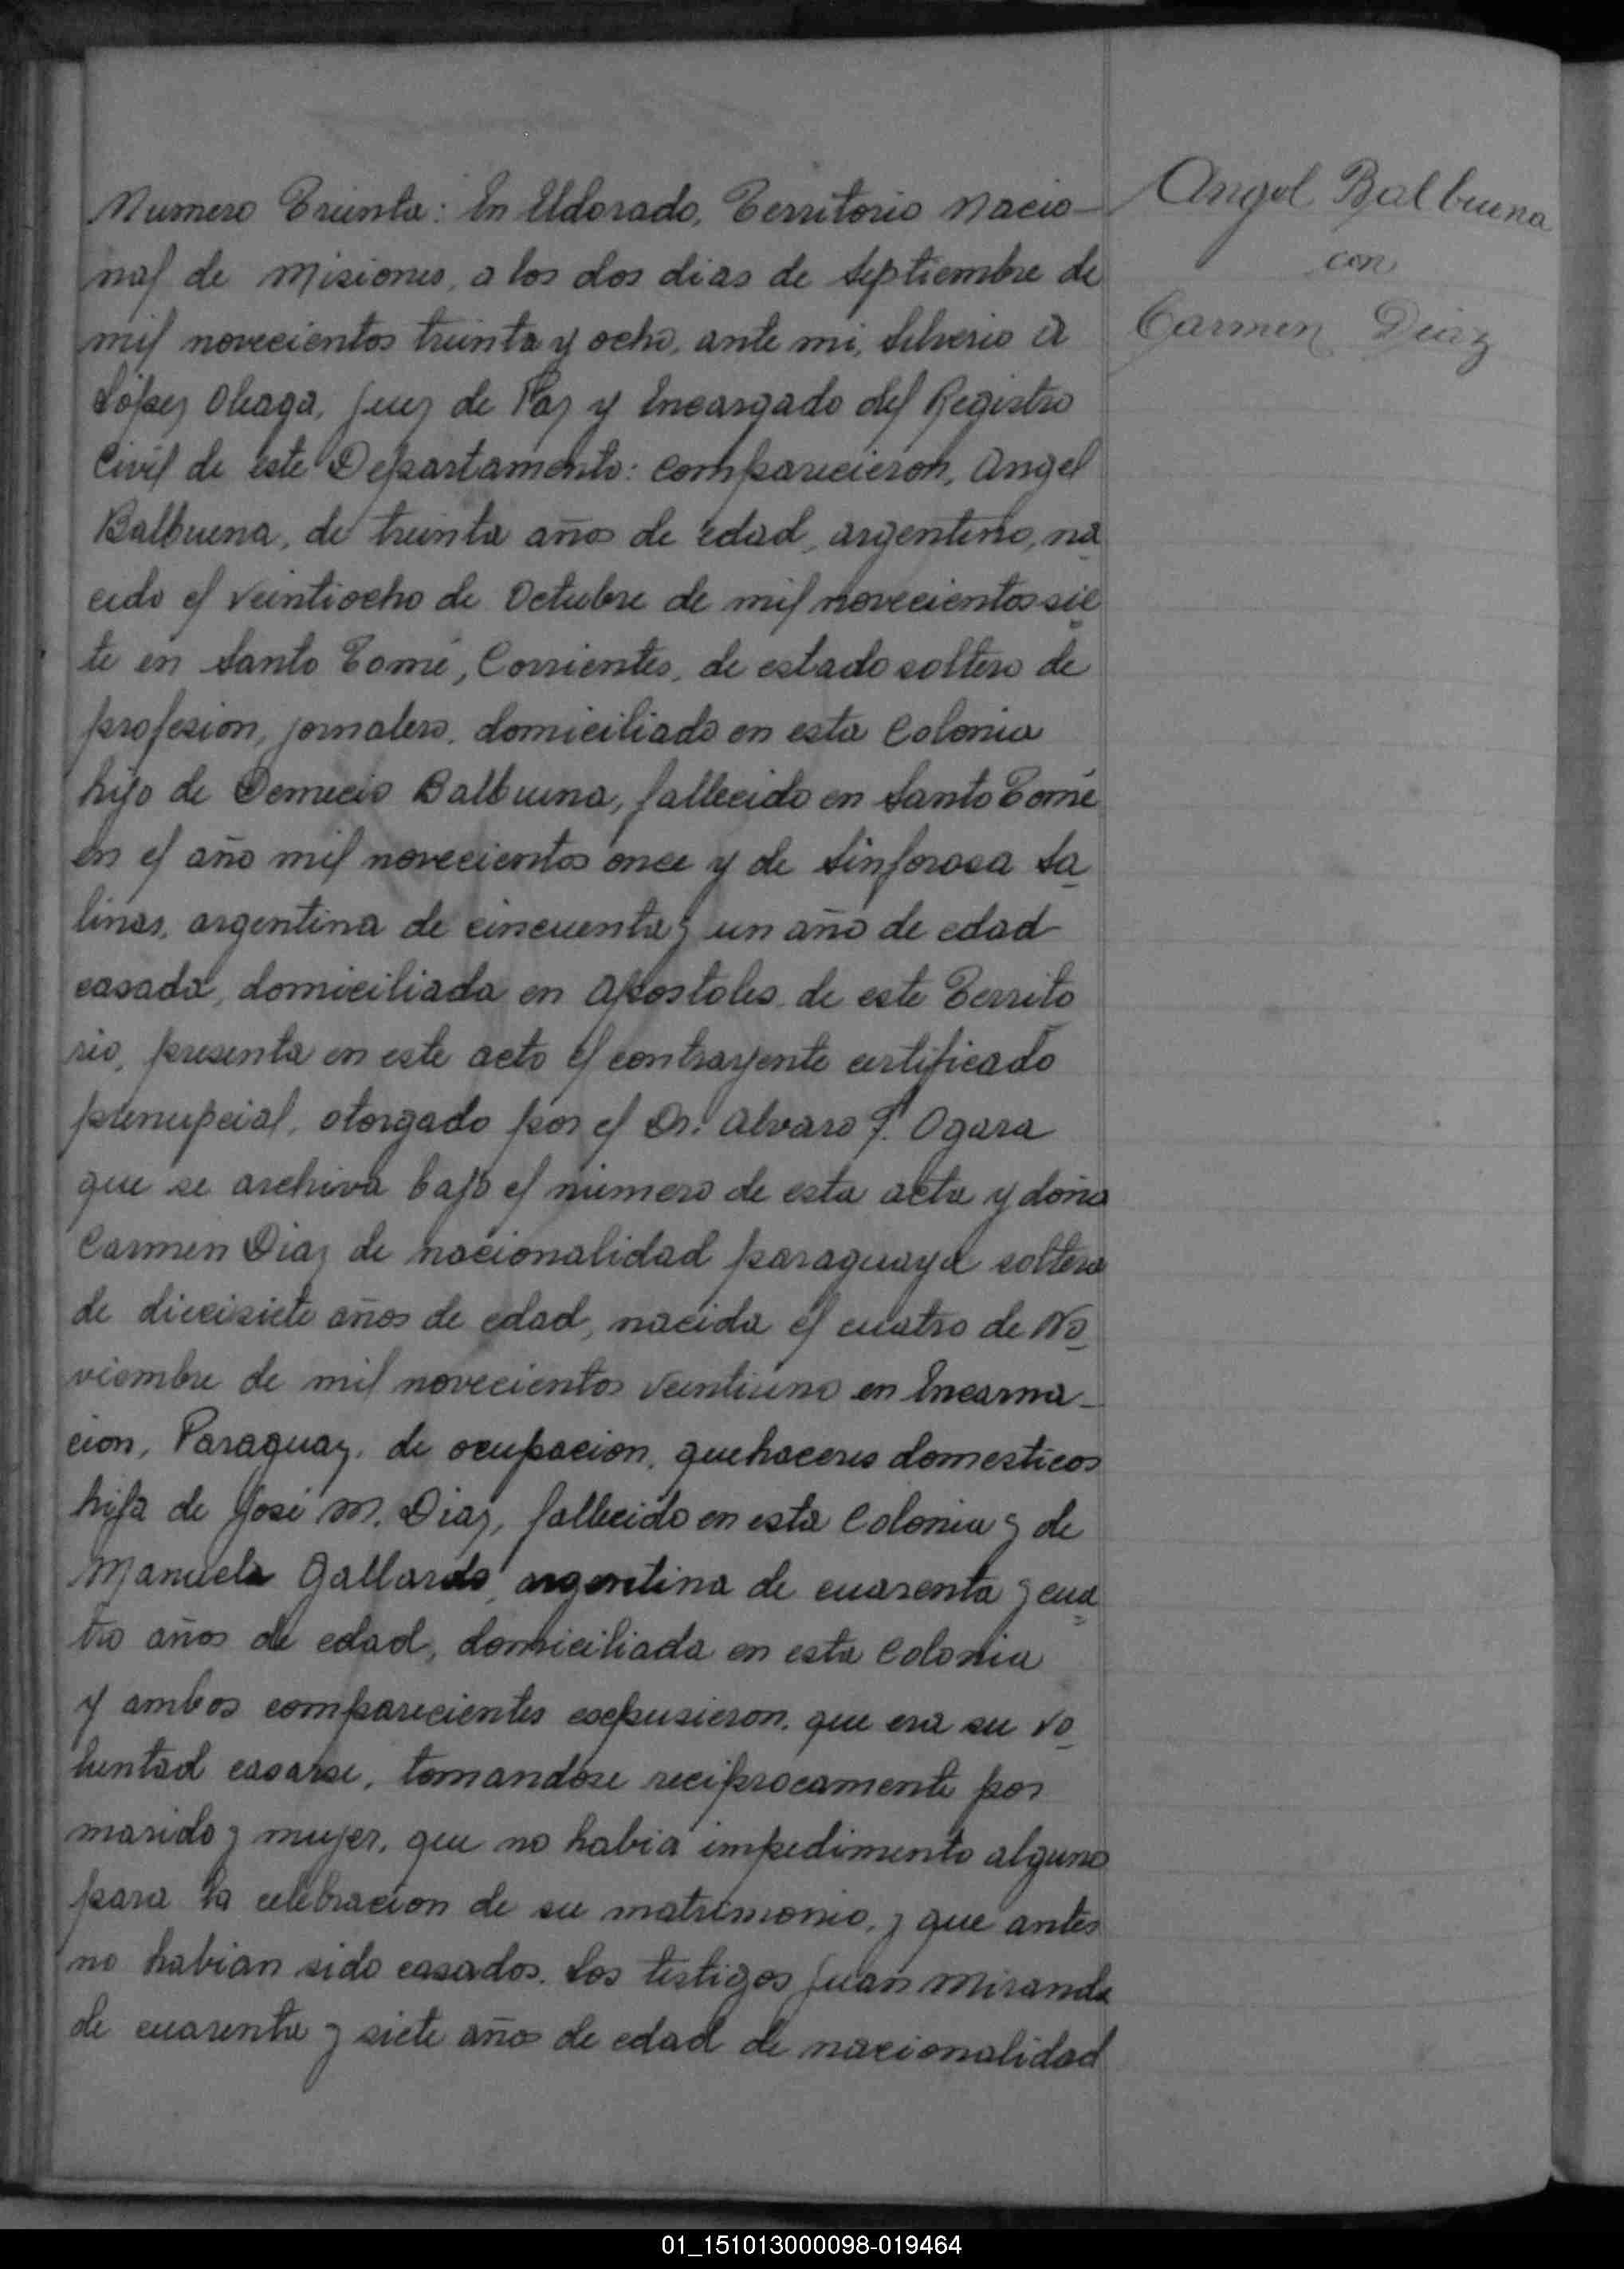 Numero Treinta: En Eldorado, Territorio Nacio-
nal de Misiones, a los dos dias de Septiembre de
mil novecientos treinta y ocho, ante mi, Silverio A
López Oleaga, Juez de Paz y Encargado del Registro
Civil de este Departamento: comparecieron, Angel
Balbuena, de treinta años de edad, argentino, na
cido el veintiocho de Octubre de mil novecientos sie
te en Santo Tomé, Corrientes, de estado soltero de
profesion, jornalero, domiciliado en esta Colonia
hijo de Balbuena, fallecido en Santo Tomé
en el año mil novecientos once y de Sinforosa Sa
linas, argentina de cincuenta y un año de edad
casada, domiciliada en Apostoles de este Territo
rio, presenta en este acto el contrayente certificado
prenupcial, otorgado por el Dr. Alvaro F. Ogara
que se archiva bajo el número de esta acta y doña
Carmen Diaz de nacionalidad paraguaya soltera
de diecisiete años de edad, nacida el cuatro de No
viembre de mil novecientos veintiuno en Encarna-
cion, Paraguay, de ocupacion, quehaceres domesticos
hija de José M. Diaz, fallecido en esta Colonia y de
Manuela Gallardo, argentina de cuarenta y cua
tro años de edad, domiciliada en esta Colonia
y ambos comparecientes expusieron, que era su vo
luntad casarse, tomandose reciprocamente por
marido y mujer, que no habia impedimento alguno
para la celebracion de su matrimonio, y que antes
no habian sido casados. Los testigos Juan Miranda
de cuarenta y siete años de edad de nacionalidad
Angel Balbuena
con
Carmen Diaz
01_151013000098-019464